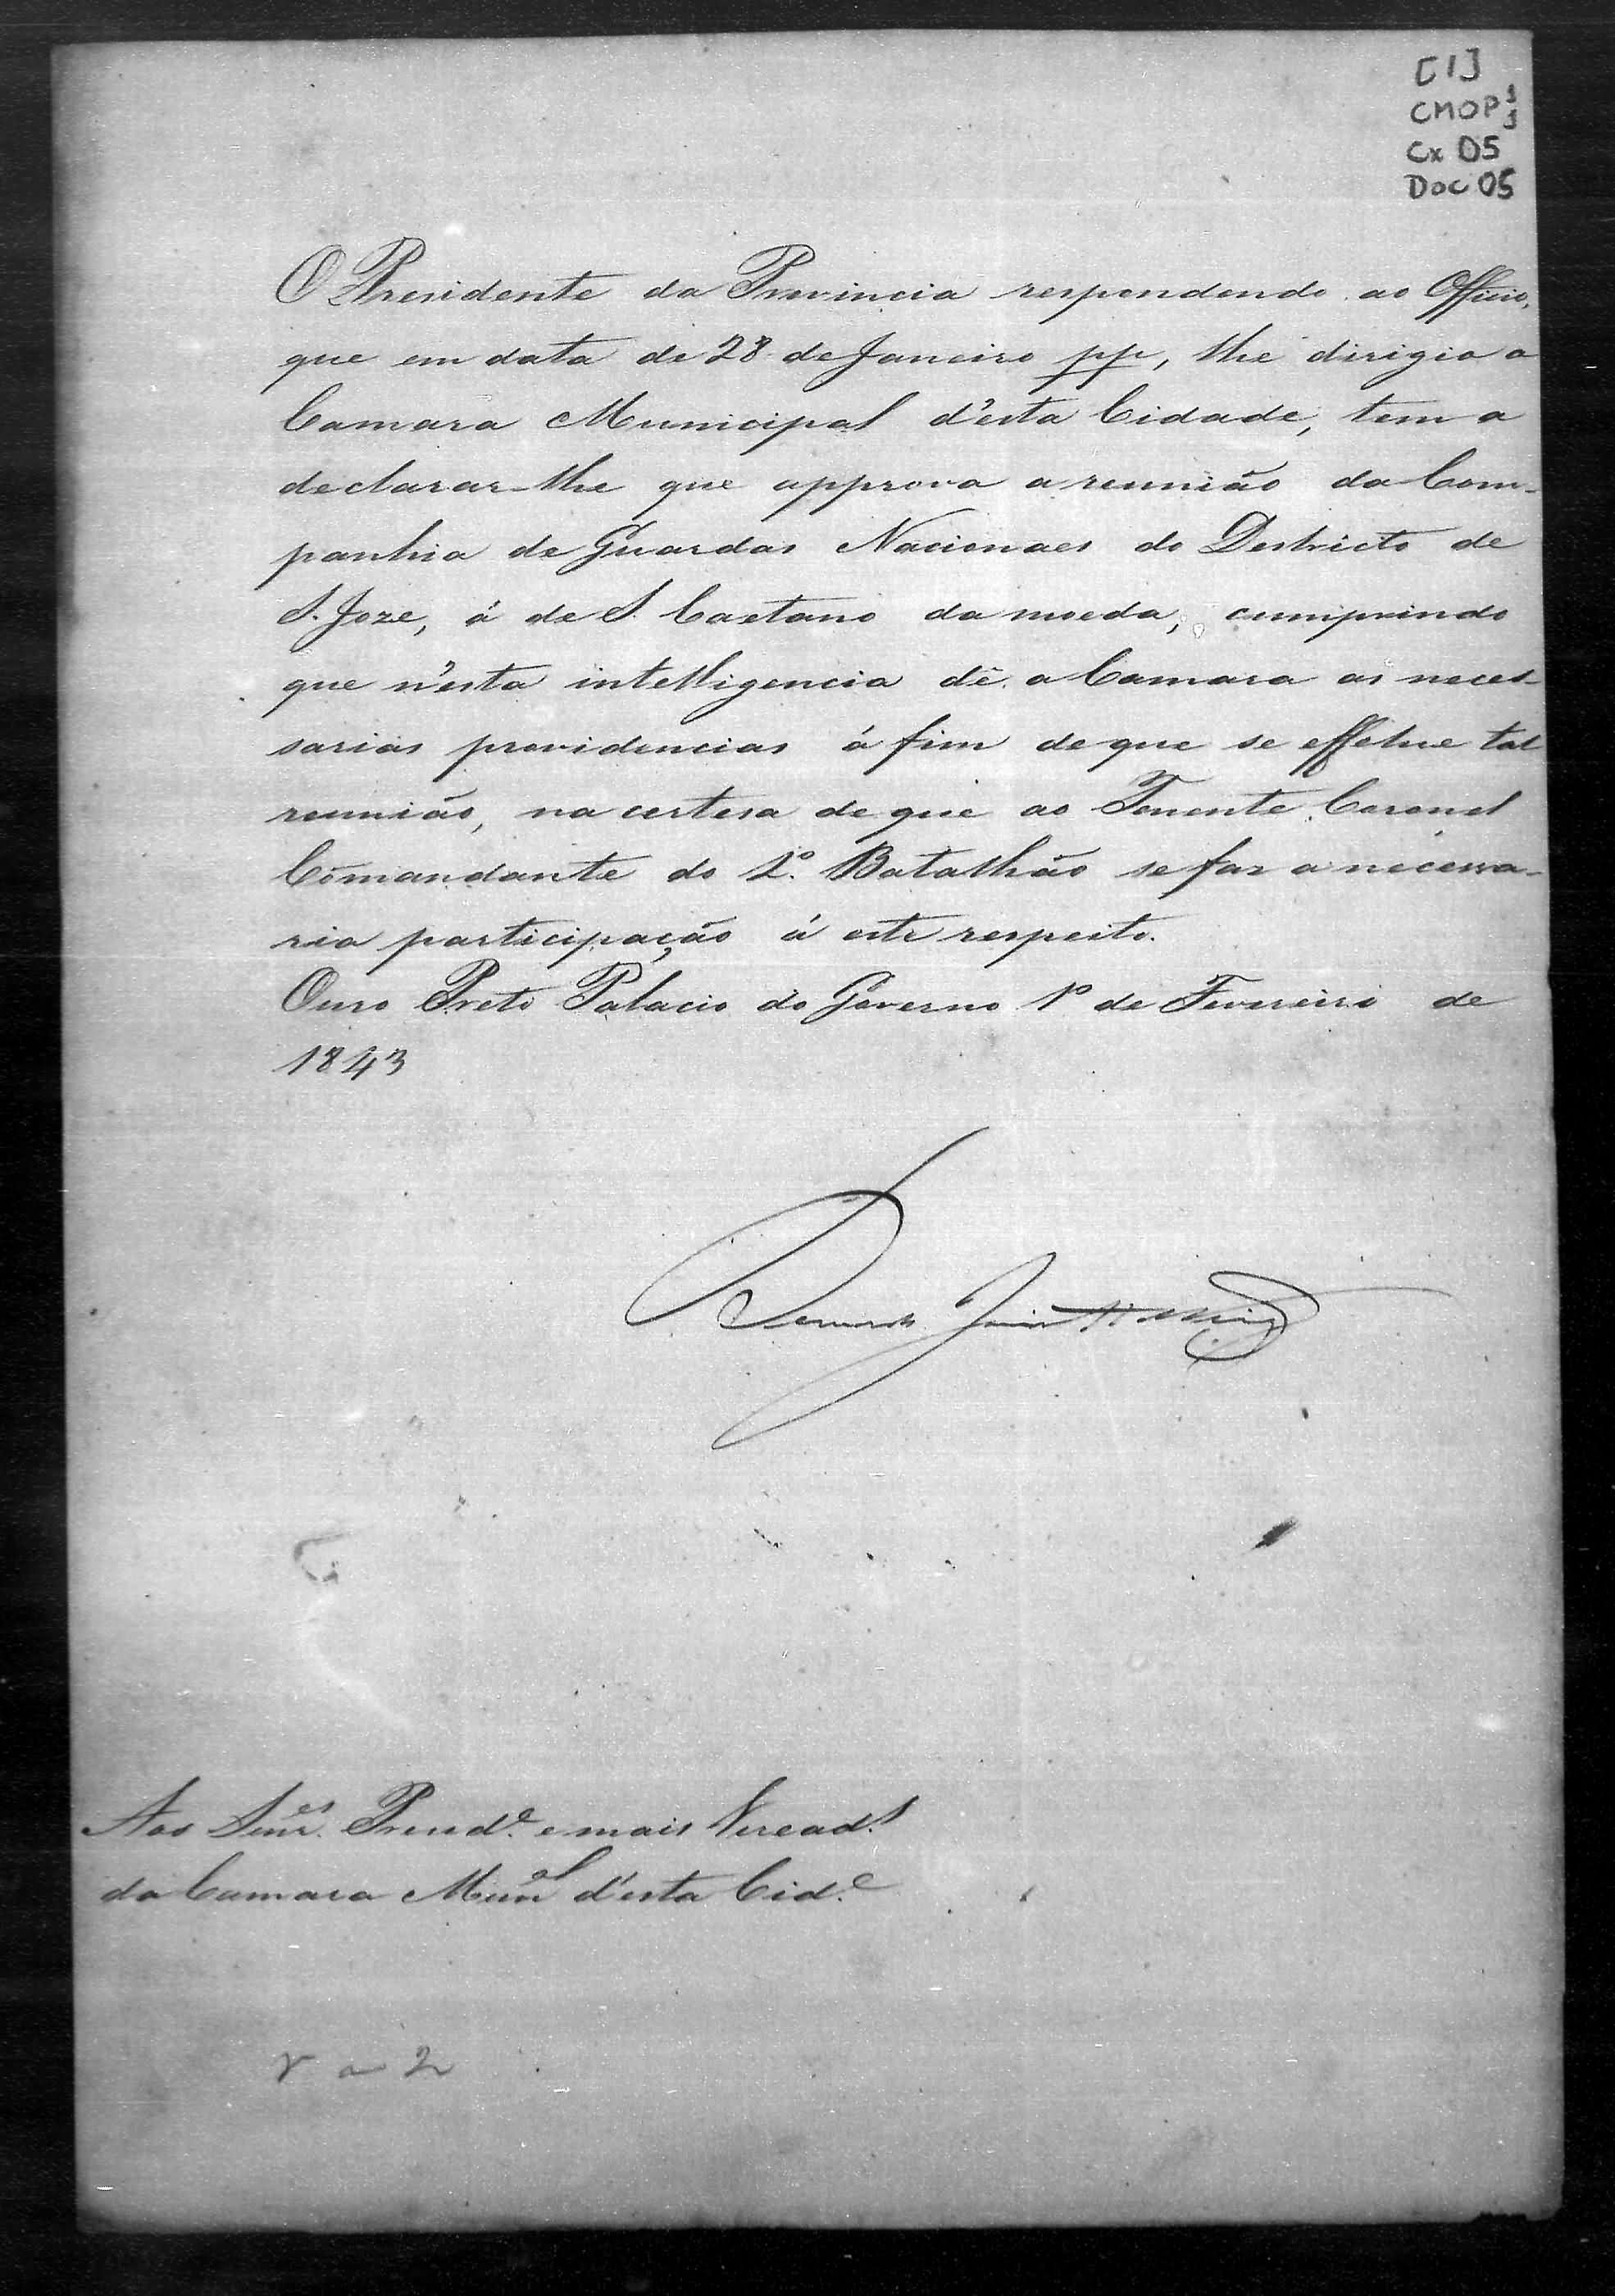 [1]
CMOP 1
3
Cx 05
Doc 05
O Presidente da Provincia respondendo ao Officio,
que em data de 28 de Janeiro pp, lhe dirigio a
Camara Municipal d'esta Cidade, tem a
declarar-lhe que approva a reunião da Com-
panhia de Guardas Nacionaes do Destricto de
S. Joze, á de S. Caetano da moeda, cumprindo
que n'esta intelligencia dê a Camara as neces-
sarias providencias á fim de que se effetue tal
reunião, na certesa de que ao Tenente Coronel
Cõmandante do 2º. Batalhão se faz a necessa-
ria participação á este respeito.
Ouro Preto Palacio do Governo 1º de Fevereiro de
1843
Bernardo
Aos Senr.es Presid.e e mais Veread.s
da Camara Mun.al d'esta Cid.e